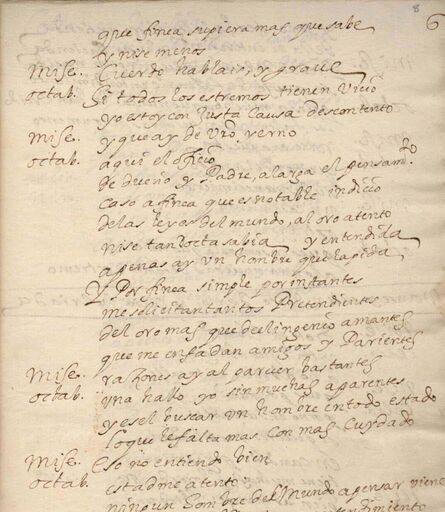 8
6
que finea supiera mas que sabe
y nise menos
Mise. Cuerdo hablais, y grave
octab. Si todos los estremos tienen vicio
yo estoy con Justa causa descontento
Mise. y que ay de vro yerno
octab. aqui el oficio
de dueño y Padre, alarga el pensamto
caso a finea que es notable indicio
de las leyes del mundo, al oro atento
nise tan docta sabia y entendida
apenas ay vn hombre que la pida
Y Por finea simple por instantes
me solicitan tantos Pretendientes
del oro mas que del ingenio amantes
que me enfadan amigos y Parientes
Mise. razones ay al parecer bastantes
octab. vna hallo yo sin muchas aparentes
y es el buscar vn hombre en todo estado
lo que le falta mas con mas Cuydado
Mise. Eso no entiendo bien
octab. estadme atento
ningun hombre del mundo a pensar viene